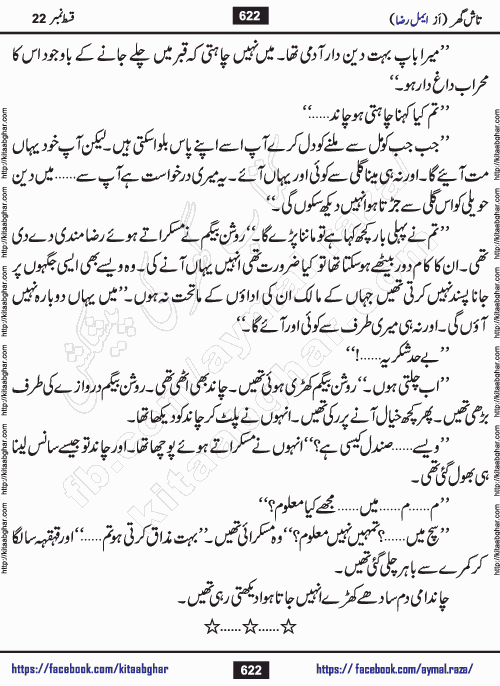 تاش گھر (از ایمل رضا) 622 قسط نمبر 22
’’میرا باپ بہت دین دار آدمی تھا۔ میں نہیں چاہتی کہ قبر میں چلے جانے کے باوجود اس کا
محراب داغ دار ہو۔‘‘
’’تم کیا کہنا چاہتی ہو چاند......‘‘
’’جب جب کومل سے ملنے کو دل کرے آپ اسے اپنے پاس بلوا سکتی ہیں۔ لیکن آپ خود یہاں
مت آئیے گا۔ اور نہ ہی مینا گلی سے کوئی اور یہاں آئے۔ یہ میری درخواست ہے آپ سے...... میں دین
حویلی کو اس گلی سے جڑتا ہوا نہیں دیکھ سکوں گی۔‘‘
’’تم نے پہلی بار کچھ کہا ہے تو ماننا پڑے گا۔‘‘ روشن بیگم نے مسکراتے ہوئے رضا مندی دے دی
تھی۔ ان کا کام دور بیٹھے ہو سکتا تھا تو کیا ضرورت تھی انہیں یہاں آنے کی۔ وہ ویسے بھی ایسی جگہوں پر
جانا پسند نہیں کرتی تھیں جہاں کے مالک ان کی اداؤں کے ماتحت نہ ہوں۔ ’’میں یہاں دوبارہ نہیں
آؤں گی۔ اور نہ ہی میری طرف سے کوئی اور آئے گا۔‘‘
’’بے حد شکریہ......!‘‘
’’اب چلتی ہوں۔‘‘ روشن بیگم کھڑی ہوئی تھیں۔ چاند بھی اٹھی تھی۔ روشن بیگم دروازے کی طرف
بڑھی تھیں۔ پھر کچھ خیال آنے پر رکی تھیں۔ انہوں نے پلٹ کر چاند کو دیکھا تھا۔
’’ویسے...... صندل کیسی ہے؟‘‘ انہوں نے مسکراتے ہوئے پوچھا تھا۔ اور چاند تو جیسے سانس لینا
ہی بھول گئی تھی۔
’’م...... م...... میں...... مجھے کیا معلوم؟‘‘
’’سچ میں......؟ تمہیں نہیں معلوم؟‘‘ وہ مسکرائی تھیں۔ ’’بہت مذاق کرتی ہو تم......‘‘ اور قہقہہ سا لگا
کر کمرے سے باہر چلی گئی تھیں۔
چاندامی دم سادھے کھڑے انہیں جاتا ہوا دیکھتی رہی تھیں۔
☆......☆......☆
https://facebook.com/kitaabghar 622 https://facebook.com/aymal.raza/
http://kitaabghar.com
fb.com/aymal.raza
kitaabghar.com